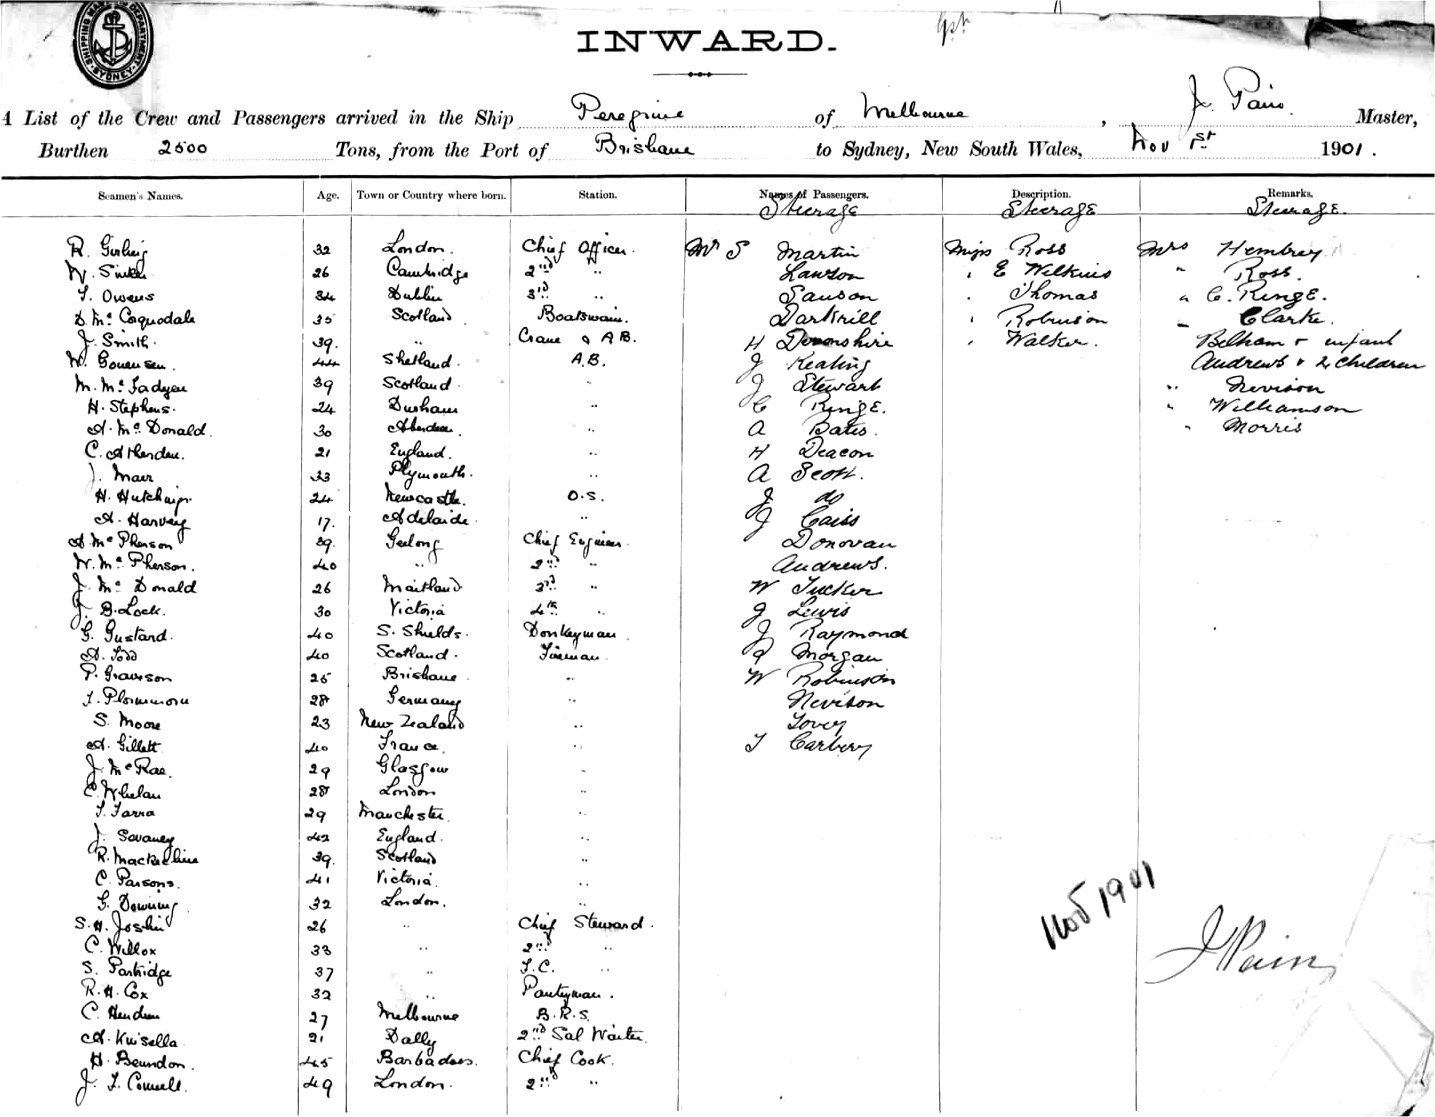 SHIPPING MASTER'S DEPARTMENT SYDNEY
INWARD.
A List of the Crew and Passengers arrived in the Ship Peregrine of Melbourne, J. Pain Master,
Burthen 2500 Tons, from the Port of Brisbane to Sydney, New South Wales, Nov 1st 1901.
Seamen's Names. Age. Town or Country where born. Station. Names of Passengers. Description. Remarks.
Steerage Steerage Steerage.
R. Girling 32 London. Chief Officer. Mr S Martin Miss Ross Mrs Hembrey
W. Sinker 26 Cambridge 2nd " Lawson " E Wilkins " Ross.
T. Owens 34 Dublin 3rd " Sauson " Thomas " C. Ringe.
D. Mc Corquodale 35 Scotland Boatswain. Darkrill " Robinson " Clarke.
J. Smith. 39. " Crane & A.B. H Devonshire " Walker. Belham & infant
W. 44 Shetland. A.B. J Keating Andrews & 2 children
M. Mc Fadyen 39 Scotland. " J Stewart " Nevison
H. Stephens. 24 Durham " C Ringe. " Williamson
A. Mc Donald. 30 Aberdeen. " A Bates. " Morris
C. Atherden. 21 England. " H Deacon
J. Marr 33 Plymouth. " A Scott.
H. Hutchings 24 Newcastle. O.S. J do
A. Harvey 17. Adelaide. " J Caiss
A Mc Pherson 39. Geelong Chief Engineer. Donovan
W. Mc Pherson. 40 " 2nd " Andrews.
J. Mc Donald 26 Maitland 3rd " W Tucker
J. B. Lock. 30 Victoria 4th " J Lewis
G. Gustard. 40 S. Shields. Donkeyman J Raymond
A. Todd 40 Scotland. Fireman. Morgan
P. Grawson 25 Brisbane " W Robinson
28 Germany " Nevison
S. Moore 23 New Zealand " Tovey
A. Gillett 40 France. " T Carbery
J. Mc Rae. 29 Glasgow "
C. Whelan 28 London "
T. Farra 29 Manchester. "
J. Savaney 42 England. "
R. 39. Scotland "
C. Parsons. 41 Victoria. "
G. Downing 32 London. "
S. H. Joslin 26 " Chief Steward.
C. Willox 33 " 2nd "
S. Partridge 37 " F.C. "
R. H. Cox 32 " Pantryman.
C. 27 Melbourne B.R.S.
A. Kinsella 21 Dally 2nd Sal Waiter.
H. Beundon. 45 Barbadoes. Chief Cook.
J. T. Connell. 49 London. 2nd "
Nov 1901
J Pain